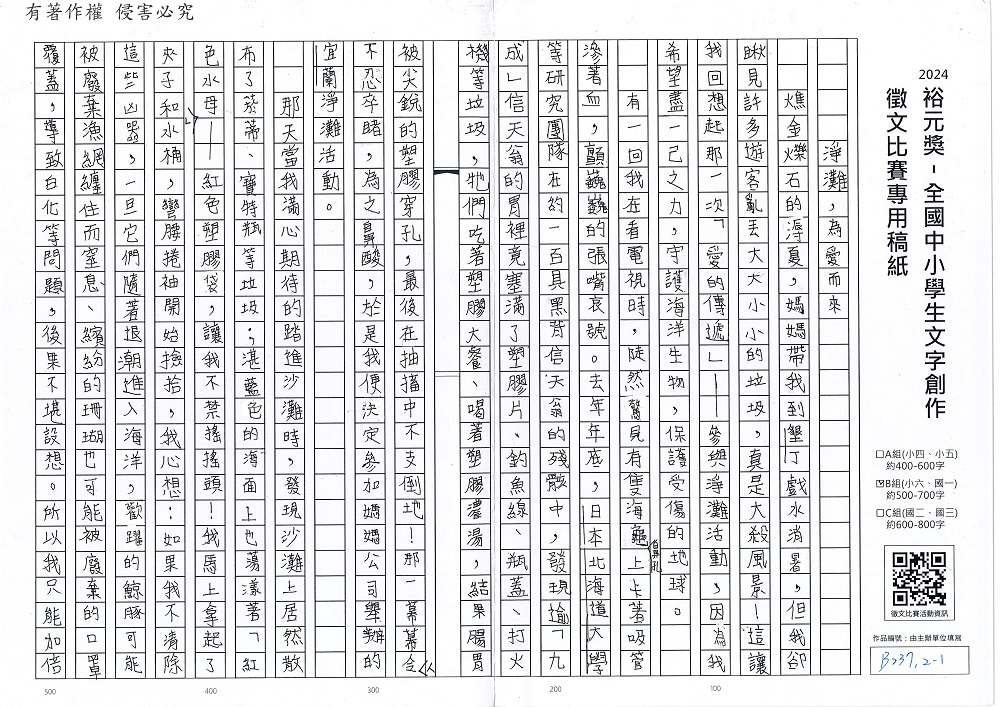 有著作權 侵害必究
2024
裕元獎-全國中小學生文字創作
徵文比賽專用稿紙
□A組(小四、小五)
約400-600字
☑B組(小六、國一)
約500-700字
□C組(國二、國三)
約600-800字
徵文比賽活動資訊
作品編號：由主辦單位填寫
B237,2-1
淨灘，為愛而來
燋金爍石的溽夏，媽媽帶我到墾丁戲水消暑，但我卻
瞅見許多遊客亂丟大大小小的垃圾，真是大殺風景！這讓
我回想起那一次「愛的傳遞」——參與淨灘活動，因為我
希望盡一己之力，守護海洋生物，保護受傷的地球。
有一回我在看電視時，陡然驚見有隻海龜上卡著吸管
鼻孔
滲著血，顫巍巍的張嘴哀號。去年年底，日本北海道大學
等研究團隊在約一百具黑背信天翁的殘骸中，發現逾「九
成」信天翁的胃裡竟塞滿了塑膠片、釣魚線、瓶蓋、打火
機等垃圾，牠們吃著塑膠大餐、喝著塑膠濃湯，結果腸胃
被尖銳的塑膠穿孔，最後在抽搐中不支倒地！那一幕幕令
不忍卒睹，為之鼻酸，於是我便決定參加媽媽公司舉辦的
宜蘭淨灘活動。
那天當我滿心期待的踏進沙灘時，發現沙灘上居然散
布了菸蒂、寶特瓶等垃圾；湛藍色的海面上也蕩漾著「紅
色水母——紅色塑膠袋，讓我不禁搖搖頭！我馬上拿起了
夾子和水桶，彎腰捲袖開始撿拾，我心想：如果我不清除
這些凶器，一旦它們隨著退潮進入海洋，歡躍的鯨豚可能
被廢棄漁網纏住而窒息、繽紛的珊瑚也可能被廢棄的口罩
覆蓋，導致白化等問題，後果不堪設想。所以我只能加倍
100
200
300
400
500